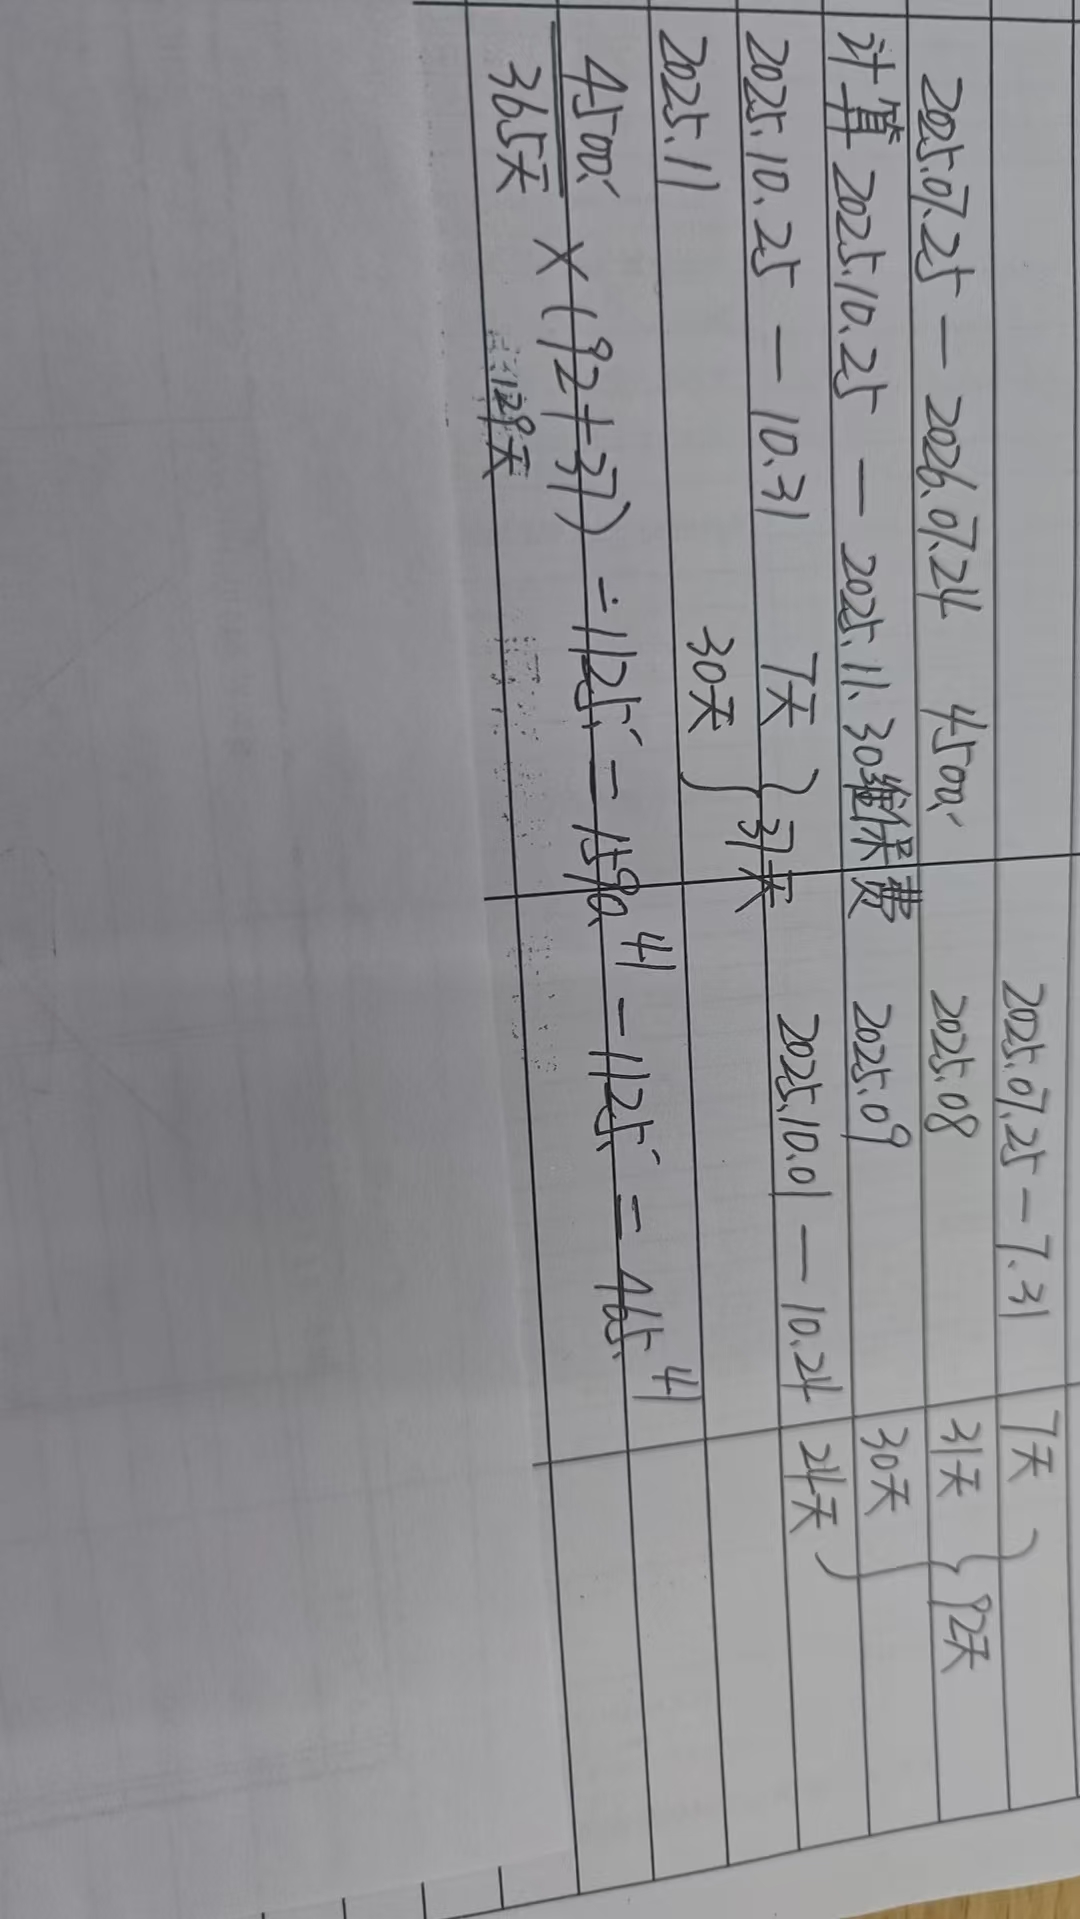 2025.07.25-7.31 7天
2025.07.25 — 2026.07.24 4500.- 2025.08 31天 } 92天
计算 2025.10.25 — 2025.11.30维保费 2025.09 30天
2025.10.25 — 10.31 7天 } 37天 2025.10.01 — 10.24 24天
2025.11 30天
4500.-
365天 × (92+37) - 1125.- = 1590.41 - 1125.- = 465.41
129天